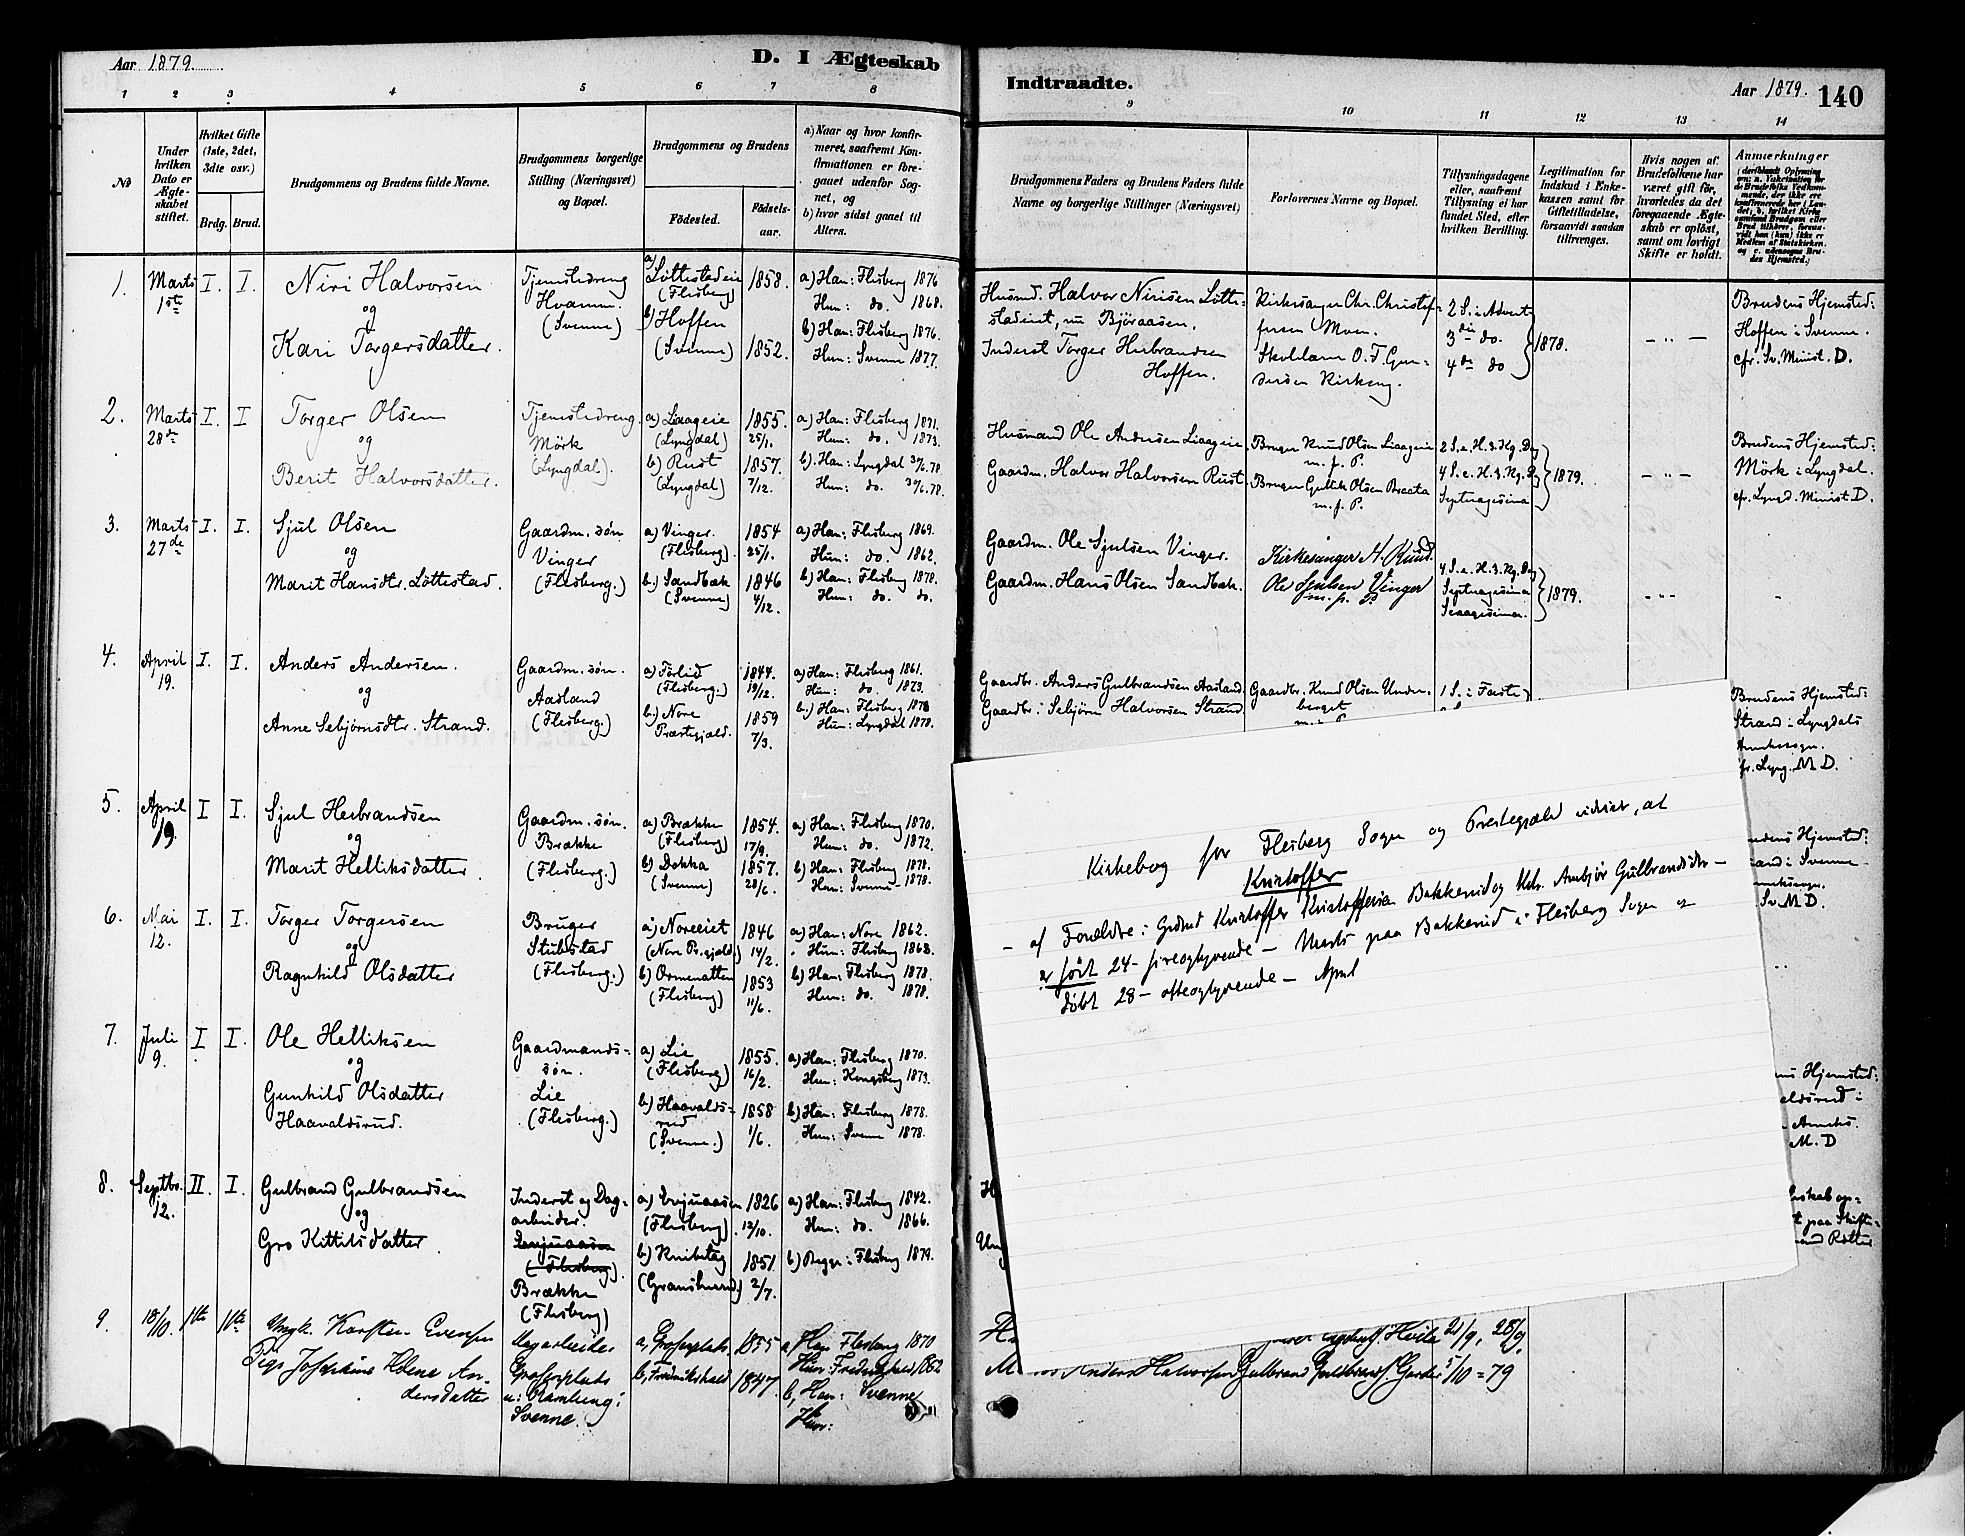 Aar 1879.
D. I Ægteskab
1 2 3 4 5 6 7 8
No
Under hvilken Dato er Ægteskabet stiftet.
Hvilket Gifte (1ste, 2det, 3dte osv.)
Brdg. Brud.
Brudgommens og Brudens fulde Navne.
Brudgommens borgerlige Stilling (Næringsvei) og Bopæl.
Brudgommens og Brudens
Födested.
Födsels-aar.
a) Naar og hvor konfir-
meret, saafremt Kon-
firmationen er fore-
gaaet udenfor Sog-
net, og
b) hvor sidst gaaet til
Alters.
1. Marts 1ste I. I.
Niri Halvorsen
og
Kari Torgersdatter.
Tjenestedreng
Hvamm.
(Svenne)
a) Løttestadeie
(Flesberg)
b) Hoffen
(Svenne)
1858.
1852.
a) Han: Flesberg 1876
Hun: do. 1868.
b) Han: Flesberg 1876.
Hun: Svenne 1877.
2. Marts 28de I. I
Torger Olsen
og
Berit Halvorsdatter.
Tjenestedreng.
Mörk
(Lyngdal).
a) Liaageie
(Lyngdal)
b) Rust
(Lyngdal)
1855.
25/1.
1857.
7/12.
a) Han: Flesberg 1871.
Hun: do. 1873.
b). Han: Lyngdal 30/6.78.
Hun: do. 30/6.78.
3. Marts 27de I. I.
Sjul Olsen
og
Marit Hansdtr. Löttestad.
Gaardm. sön
Vinger
(Flesberg.)
a) Vinger.
(Flesberg).
b.) Sandbæk
(Svenne)
1854
25/1.
1846
4/12.
a) Han: Flesberg 1869.
Hun: do. 1862.
b) Han: Flesberg 1878.
Hun: do. do.
4. April 19. I. I.
Anders Andersen.
og
Anne Sebjörnsdtr. Strand.
Gaardm. sön.
Aasland
(Flesberg.)
a) Förlid
(Flesberg.)
b.) Nore
Præstegjæld.
1844.
19/12.
1859
7/3.
a) Han: Flesberg 1861.
Hun: do. 1873.
b.) Han: Flesberg 1878
Hun: Lyngdal 1878.
5. April 19. I I.
Sjul Herbrandsen
og
Marit Helliksdatter
Gaardm. sön.
Brække
(Flesberg.)
a) Brække
(Flesberg)
b) Dokka
(Svenne)
1854.
17/9.
1857.
28/6.
a) Han: Flesberg 1870.
Hun: do. 1872.
b) Han: Flesberg 1878.
Hun: Svenne 1878.
6. Mai 12. I. I.
Torger Torgersen
og
Ragnhild Olsdatter
Bruger
Stubstad
(Flesberg.)
a) Noreeiet
(Nore Pr.gjæld)
b) Ormenatten
(Flesberg)
1846
14/2.
1853
11/6.
a) Han: Nore 1862.
Hun: Flesberg 1868.
b) Han: Flesberg 1878.
Hun: do. 1878.
7. Juli 9. I I.
Ole Helliksen
og
Gunhild Olsdatter
Haavaldsrud.
Gaardmands-
sön.
Lie
(Flesberg.)
a) Lie
(Flesberg)
b) Haavalds-
rud
(Svenne.)
1855.
16/2.
1858
1/6.
a) Han: Flesberg 1870.
Hun: Kongsberg 1873.
b) Han: Flesberg 1878.
Hun: Svenne 1878.
8. Septbr. 12. II. I.
Gulbrand Gulbrandsen
og
Gro Kittilsdatter.
Inderst og Dag-
arbeider.
(Flesberg).
Brække
(Flesberg)
(Flesberg)
1826
12/10.
1851.
2/7.
a) Han: Flesberg 1842.
Hun: do. 1866.
b) Begge: Flesberg 1879.
9. 18/10. 1ste 1ste
Ungk. Karsten Evensen
Pige Josephine Helene An-
dersdatter
Svenne.
b, Fredrikshald
1855
1847.
a, Han Flesberg 1870
Hun: Fredrikshald 1862
b, Han: Svenne
Hun:
Indtraadte.
Aar 1879. 140
9 10 11 12 13 14
Brudgommens Faders og Brudens Faders fulde Navne og borgerlige Stillinger (Næringsvei)
Forlovernes Navne og Bopæl.
Tillysningsdagene eller, saafremt Tillysning ei har fundet Sted, efter hvilken Bevilling.
Legitimation for Indskud i Enke-kassen samt for Giftetilladelse, forsaavidt saadan tiltrænges.
Hvis nogen af Brudefolkene har været gift før, hvorledes da det foregaaende Ægte-skab er opløst, samt om lovligt Skifte er holdt.
Anmærkninger
Husmd. Halvor Nirisen Løtte-
stadeiet, nu Björaasen.
Inderst Torger Herbrandsen
Hoffen.
Kirkesanger Chr. Christof-
fersen Moen.
Skolelærer O. F. Gun-
dersen Kirkeng.
2 S. i Advent
3die do.
4de do
1878.
Brudens Hjemsted:
Hoffen i Svenne.
cfr. Sv. Minist. D.
Husmand Ole Andersen Liaageie
Gaardm. Halvor Halvorsen Rust.
Bruger Knud Olsen Liaageie
m. f. P.
Bruger Gullik Olsen Braata
m. f. P.
2 S. e. H. 3. Kg. Dg
4 S. e. H. 3. Kg. Dg
Septuagesima
1879.
Brudens Hjemsted:
Mörk i Lyngdal.
cfr. Lyngd. Minist D.
Gaardm. Ole Sjulsen Vinger.
Gaardm. Hans Olsen Sandbæk.
Kirkesanger H. Ruud.
Ole Sjulsen Vinger
m. p. P.
4 S. e. H. 3. Kg. Dg
Septuagesima
Sexagesima.
1879.
Gaardbr. Anders Gulbrandsen Aasland.
Gaardbr: Sebjörn Halvorsen Strand
Gaardbr. Knud Olsen Under-
berget
1 S. i Faste
Brudens Hjemsted:
Strand i Lyngdals
Annekssogn.
cfr. Lyng. M D.
Kirkebog for Flesberg Sogn og Prestegjæld udviser, at
Kristoffer
– af Forældre: Grdmd Kristoffer Kristoffersen Bakkerud og Hstr. Ambjör Gulbrandsdtr –
er født 24 – fireogtyvende – Marts paa Bakkerud i Flesberg Sogn og
döbt 28 – otteogtyvende – April
Hjemsted:
i Svenne
Sv. M D.
Hjemsted:
M. D
Hvila 21/9, 28/9,
Anders Halvorsen
Gulbrand Guldbrands. 5/10 = 79